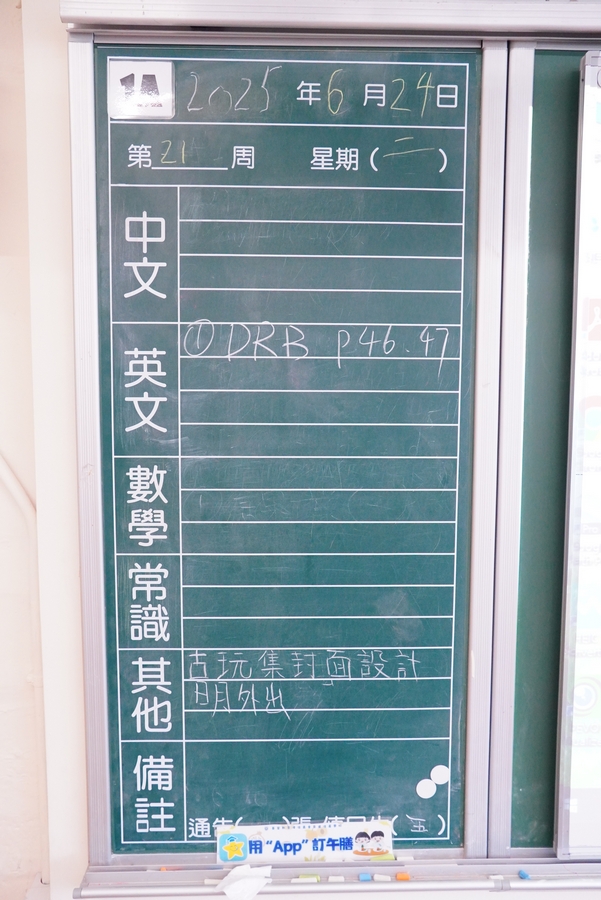 1A 2025年6月24日
第21周 星期(二)
中文
英文 ① DRB P46.47
數學
常識
其他 古玩集封面設計
明外出
備註
通告( )張 (五)
用“App”訂午膳